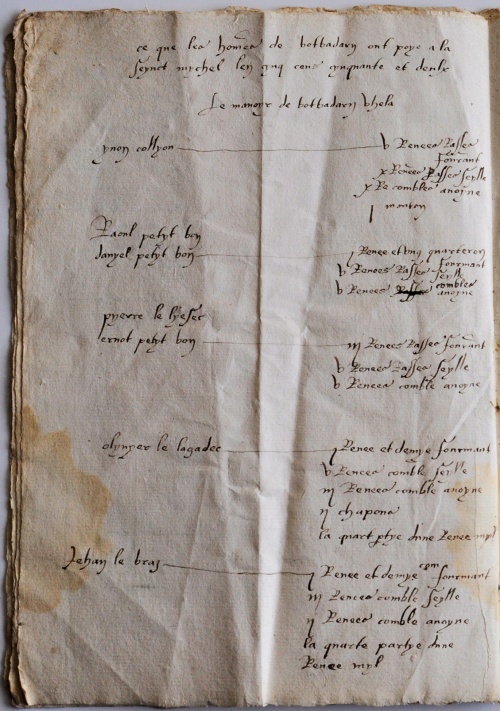 ce que les homes de botbadarn ont poye a la
seynct mychel len cinq cens cynquante et deulx
Le manoyr de botbadarn Uhela
ynon collyou
v Renees Rasses
fourant
x Renees Rasses seylle
x Re combles avoyne
j mouton
Raoul petyt bon
danyel petyt bon
j Renee et ung quarteron
fourmant
v Renees Rasses seylle
v Renees combles avoyne
pyerre le
ernot petyt bon
iij Renees Rasses fourant
v Renees Rasses seylle
v Renees comble avoyne
olyvyer le lagadec
j Renee et demye fourmant
v Renees comble seylle
iij Renees comble avoyne
ij chapons
la quart ptye dune Renee myl
Jehan le bras
j Renee et demye fourmant
iij Renees comble seylle
ij Renees comble avoyne
la quarte partye dune
Renee myl